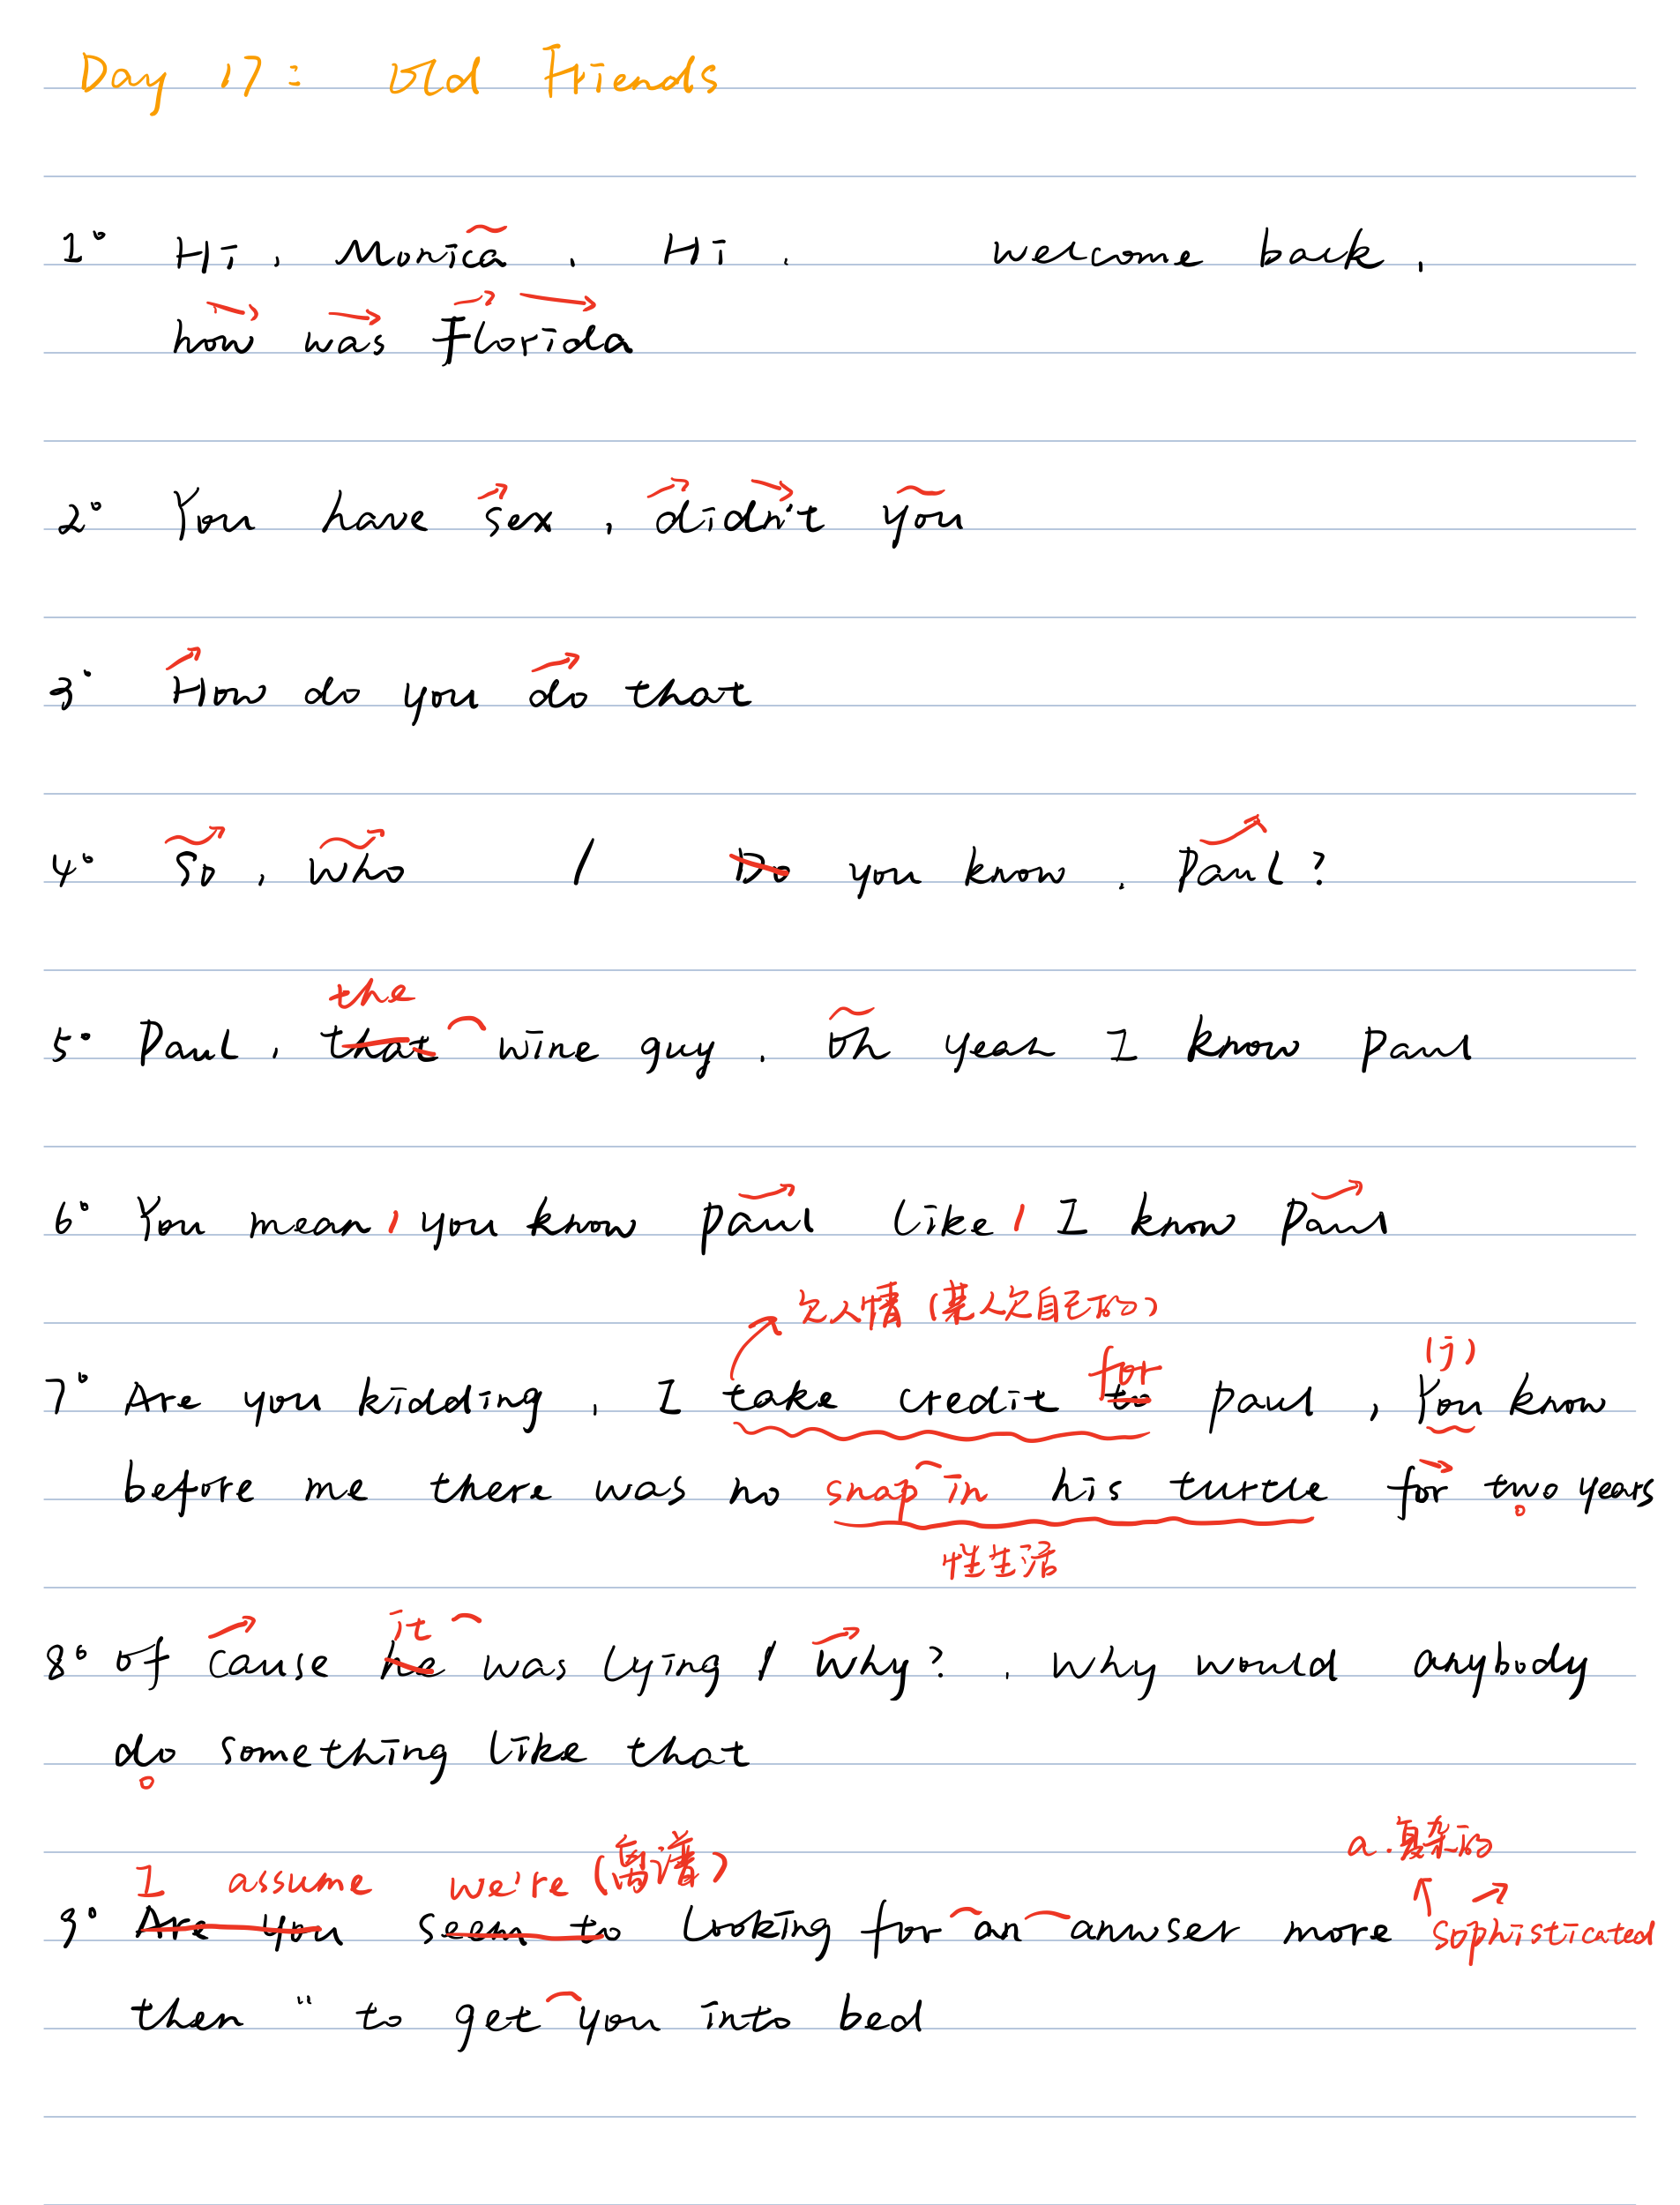 Day 17: Old Friends
1° Hi, Monica, Hi, welcome back,
how was Florida
2° You have sex, didn't you
3° How do you do that
4° So, who / Do you know, Paul?
the
5° Paul, that wine guy, oh yeah I know Paul
6° You mean / you know Paul like / I know Paul
欠人情(某人欠自己的)
for (j)
7° Are you kidding, I take credit to Paul, You know
before me there was no snap in his turtle for two years
性生活
it
8° of cause he was lying / why?, why would anybody
do something like that
a.复杂的
I assume we're (离谱)
9° Are you seem to looking for an anwser more sophisticated
then " to get you into bed